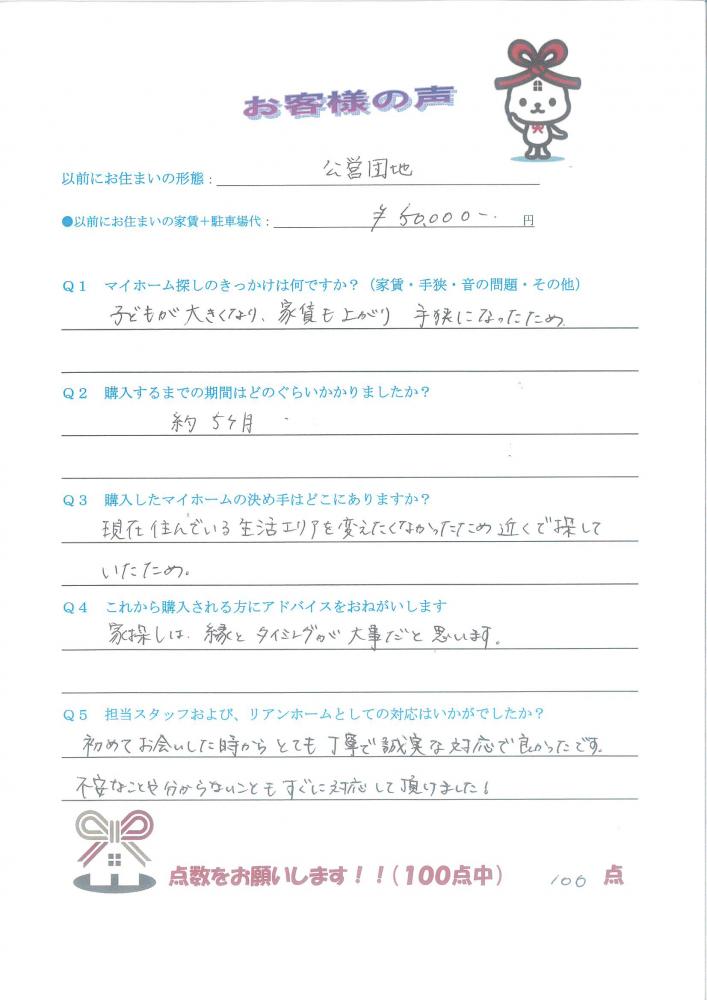 お客様の声
以前にお住まいの形態：公営団地
●以前にお住まいの家賃＋駐車場代：¥50,000-. 円
Ｑ１　マイホーム探しのきっかけは何ですか？（家賃・手狭・音の問題・その他）
子どもが大きくなり、家賃も上がり 手狭になったため
Ｑ２　購入するまでの期間はどのぐらいかかりましたか？
約 5ヶ月
Ｑ３　購入したマイホームの決め手はどこにありますか？
現在住んでいる生活エリアを変えたくなかったため近くで探して
いたため。
Ｑ４　これから購入される方にアドバイスをおねがいします
家探しは、縁とタイミングが大事だと思います。
Ｑ５　担当スタッフおよび、リアンホームとしての対応はいかがでしたか？
初めてお会いした時からとても丁寧で誠実な対応で良かったです。
不安なことや分からないこともすぐに対応して頂けました！
点数をお願いします！！(100点中) 100 点